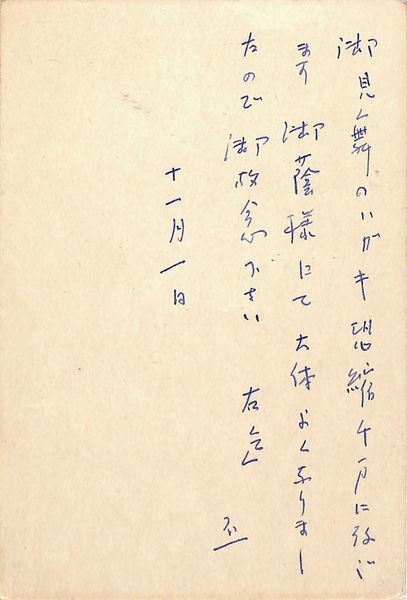 御見舞のハガキ恐縮千万に存じ
ます 御蔭様にて大体よくなりまし
たので御放念下さい 右迄
不一
十一月一日